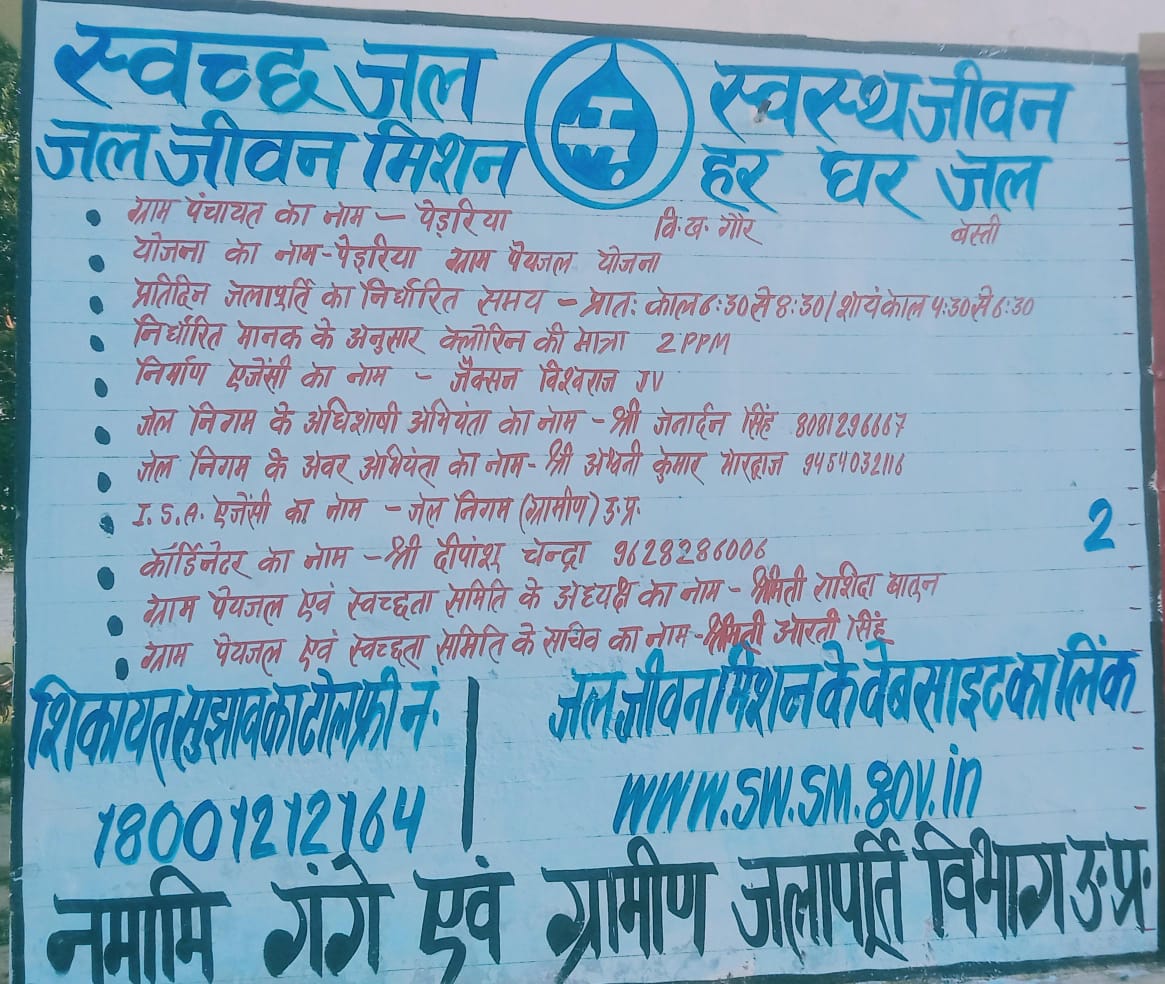 स्वच्छ जल स्वस्थ जीवन
जल जीवन मिशन हर घर जल
ग्राम पंचायत का नाम – पेड़रिया वि.ख. गौर बस्ती
योजना का नाम - पेड़रिया ग्राम पेयजल योजना
प्रतिदिन जलापूर्ति का निर्धारित समय – प्रातः काल 6:30 से 8:30 / शायंकाल 4:30 से 6:30
निर्धारित मानक के अनुसार क्लोरिन की मात्रा 2 PPM
निर्माण एजेंसी का नाम – जैक्सन विश्वराज JV
जल निगम के अधिशाषी अभियंता का नाम – श्री जनार्दन सिंह 8081296667
जल निगम के अवर अभियंता का नाम - श्री अश्वनी कुमार भारद्वाज 9454032116
I. S. A. एजेंसी का नाम – जल निगम (ग्रामीण) उ.प्र.
कॉर्डिनेटर का नाम – श्री दीपांशू चन्द्रा 9628286006
2
ग्राम पेयजल एवं स्वच्छता समिति के अध्यक्ष का नाम - श्रीमती राशिदा खातून
ग्राम पेयजल एवं स्वच्छता समिति के सचिव का नाम - श्रीमती आरती सिंह
शिकायत सुझाव का टोल फ्री नं.
18001212164
जल जीवन मिशन के वेबसाइट का लिंक
www.sw.sm.gov.in
नमामि गंगे एवं ग्रामीण जलापूर्ति विभाग उ.प्र.